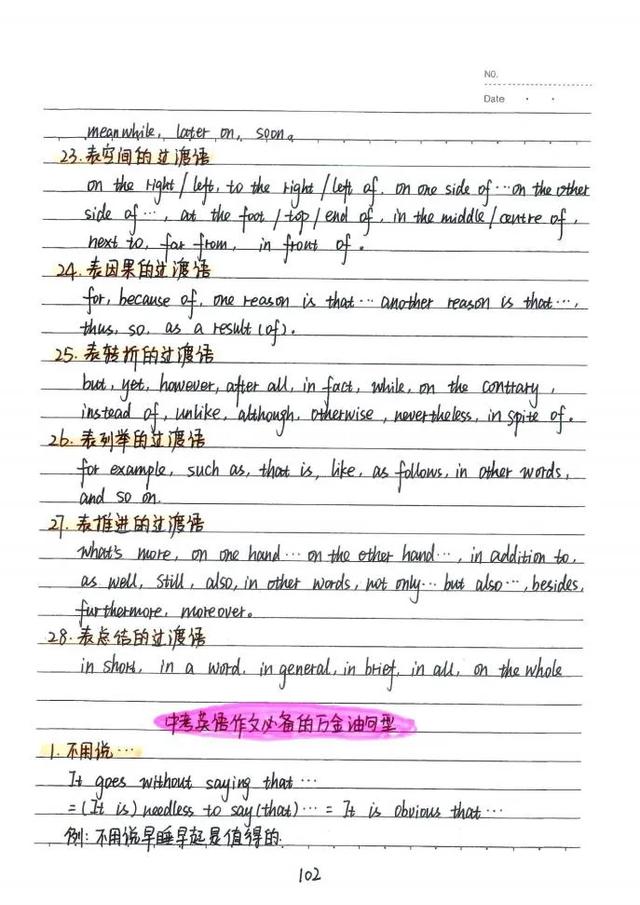 NO.
Date
meanwhile, later on, soon.
23.表空间的过渡语
on the right/left, to the right/left of, on one side of…on the other
side of…, at the foot/top/end of, in the middle/centre of,
next to, far from, in front of.
24.表因果的过渡语
for, because of, one reason is that… another reason is that…,
thus, so, as a result (of).
25.表转折的过渡语
but, yet, however, after all, in fact, while, on the contrary,
instead of, unlike, although, otherwise, nevertheless, in spite of.
26.表列举的过渡语
for example, such as, that is, like, as follows, in other words,
and so on.
27.表推进的过渡语
what's more, on one hand… on the other hand…, in addition to,
as well, still, also, in other words, not only… but also…, besides,
furthermore, moreover.
28.表总结的过渡语
in short, in a word, in general, in brief, in all, on the whole
中考英语作文必备的万金油句型
1.不用说…
It goes without saying that…
=(It is) needless to say (that)… = It is obvious that…
例:不用说早睡早起是值得的.
102